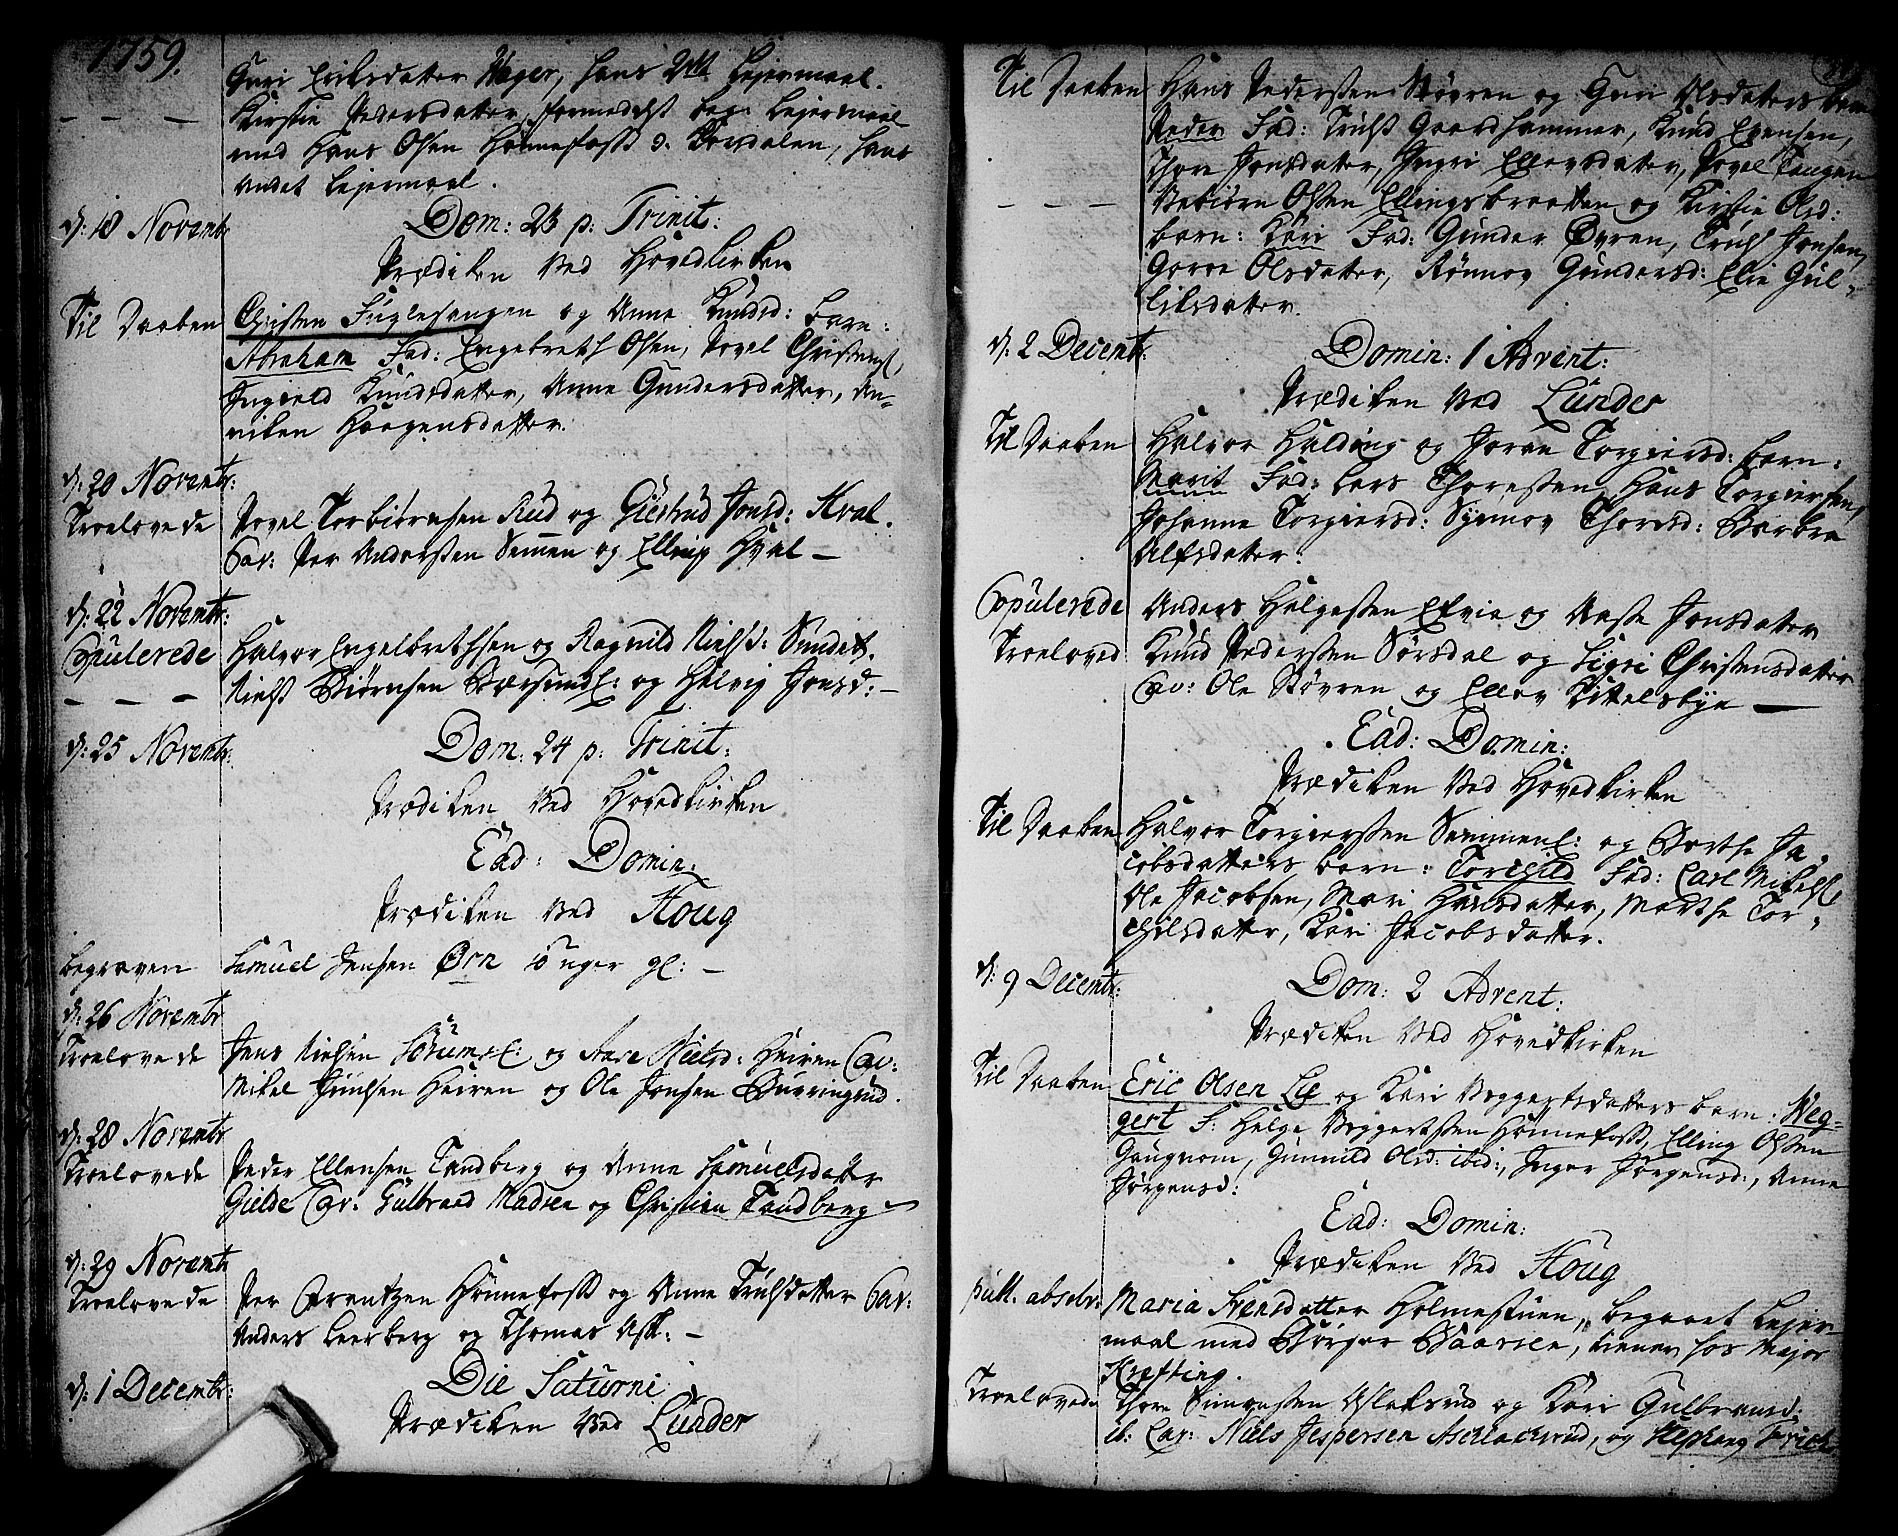 1759.
Guri Eriksdatter Wager, hans 2det Lejermaal.
— — — Kirstie Pedersdatter formedelst beg: Lejermaal
med Hans Olsen Hønnefoss o. Korsdalen, hans
andet Lejermaal.
d: 18 Novembr Dom: 23 p: Trinit:
Prædiken ved Hovedkirken
Til Daaben Christen Fuglesangen og Anne Knudsd: barn:
Abraham Fad: Engebreth Olsen, Povel Christens:,
Ingield Knudsdatter, Anne Gundersdatter, An-
niken Haagensdatter.
d: 20 Novembr:
Troelovede Povel Torbiørnsen Rud og Giertrud Jonsd: Hval.
Cav: Per Andersen Semen og Elling Hval —
d: 22 Novembr:
Copulerede Halvor Engelbrethsen og Ragnild Nielsd: Sundet.
— — — Niels Biørnsen Bærsund: og Helvig Jonsd: —
d: 25 Novembr: Dom: 24 p: Trinit:
Prædiken ved Hovedkirken
Ead: Domin:
Prædiken ved Houg
begraven Samuel Jensen Ørn 10 uger gl: —
d: 26 Novembr
Troelovede Jens Nielsen Sørum: og Aase Nielsd: Heiren Cav:
Mikel Juulsen Heiren og Ole Jonsen Burringrud.
d: 28 Novembr
Troelovede Peder Ellensen Tandberg og Anne Samuelsdatter
Gielde Cav: Gulbrand Madsen og Christian Tandberg
d: 29 Novembr
Troelovede Per Frantzen Hønnefoss og Anne Trulsdatter Cav:
Anders Leerberg og Thomas Ask: —
d: 1 Decembr: Die Saturni
Prædiken ved Lunder
Til Daaben Hans Pedersen Støvren og Guri Olsdaters barn
Peder Fad: Truls Gaardhammer, Knud Evensen,
Thore Jonsdatter, Ingri Ellevsdatter, Povel Tangen
— — — Vebiørn Olsen Ellingsbraaten og Kirstie Olsd:
barn: Kari Fad: Gunder Øvren, Truls Jonsen,
Goroe Olsdatter, Rønnov Gundersd: Elie Gul-
liksdatter.
d: 2 Decembr: Domin: 1 Advent:
Prædiken ved Lunder
Til Daaben Halvor Halding og Joran Torgiersd: barn:
Marit Fad: Lars Thoresen, Hans Torgiersen,
Johanne Torgiersd: Synnov Thoresd: Barbra
Alfsdatter.
Copulerede Anders Helgesen Elvie og Aase Jonsdatter
Troeloved Knud Pedersen Sørsdal og Sigri Christensdatter
Cav: Ole Støvren og Ellev Kittelsbye —
Ead: Domin:
Prædiken ved Hovedkirken
Til Daaben Halvor Torgiersen Semmen: og Berthe Ja-
cobsdatters barn: Torchild Fad: Carl Mikels:
Ole Jacobsen, Mari Hansdatter, Marthe Tor-
chilsdatter, Kari Jacobsdatter.
d: 9 Decembr: Dom: 2 Advent:
Prædiken ved Hovedkirken
Til Daaben Eric Olsen Lie og Kari Veggersdatters barn: Weg-
gert F: Helge Veggertsen Hønnefoss, Elling Olsen
Gaugnom, Gunnild Olsd: ibid:, Inger Jørgensd:, Anne
Jørgensd:
Ead: Domin:
Prædiken ved Houg
publ. absolv: Maria Svensdatter Holmestuen, begaaet Lejer-
maal med Børger Baarsen, tiener hos Major
Krefting.
Troelovede Thore Simensen Aslaksrud og Kari Gulbrandsd:
ib: Cav: Niels Jespersen Aschlachsrud, og